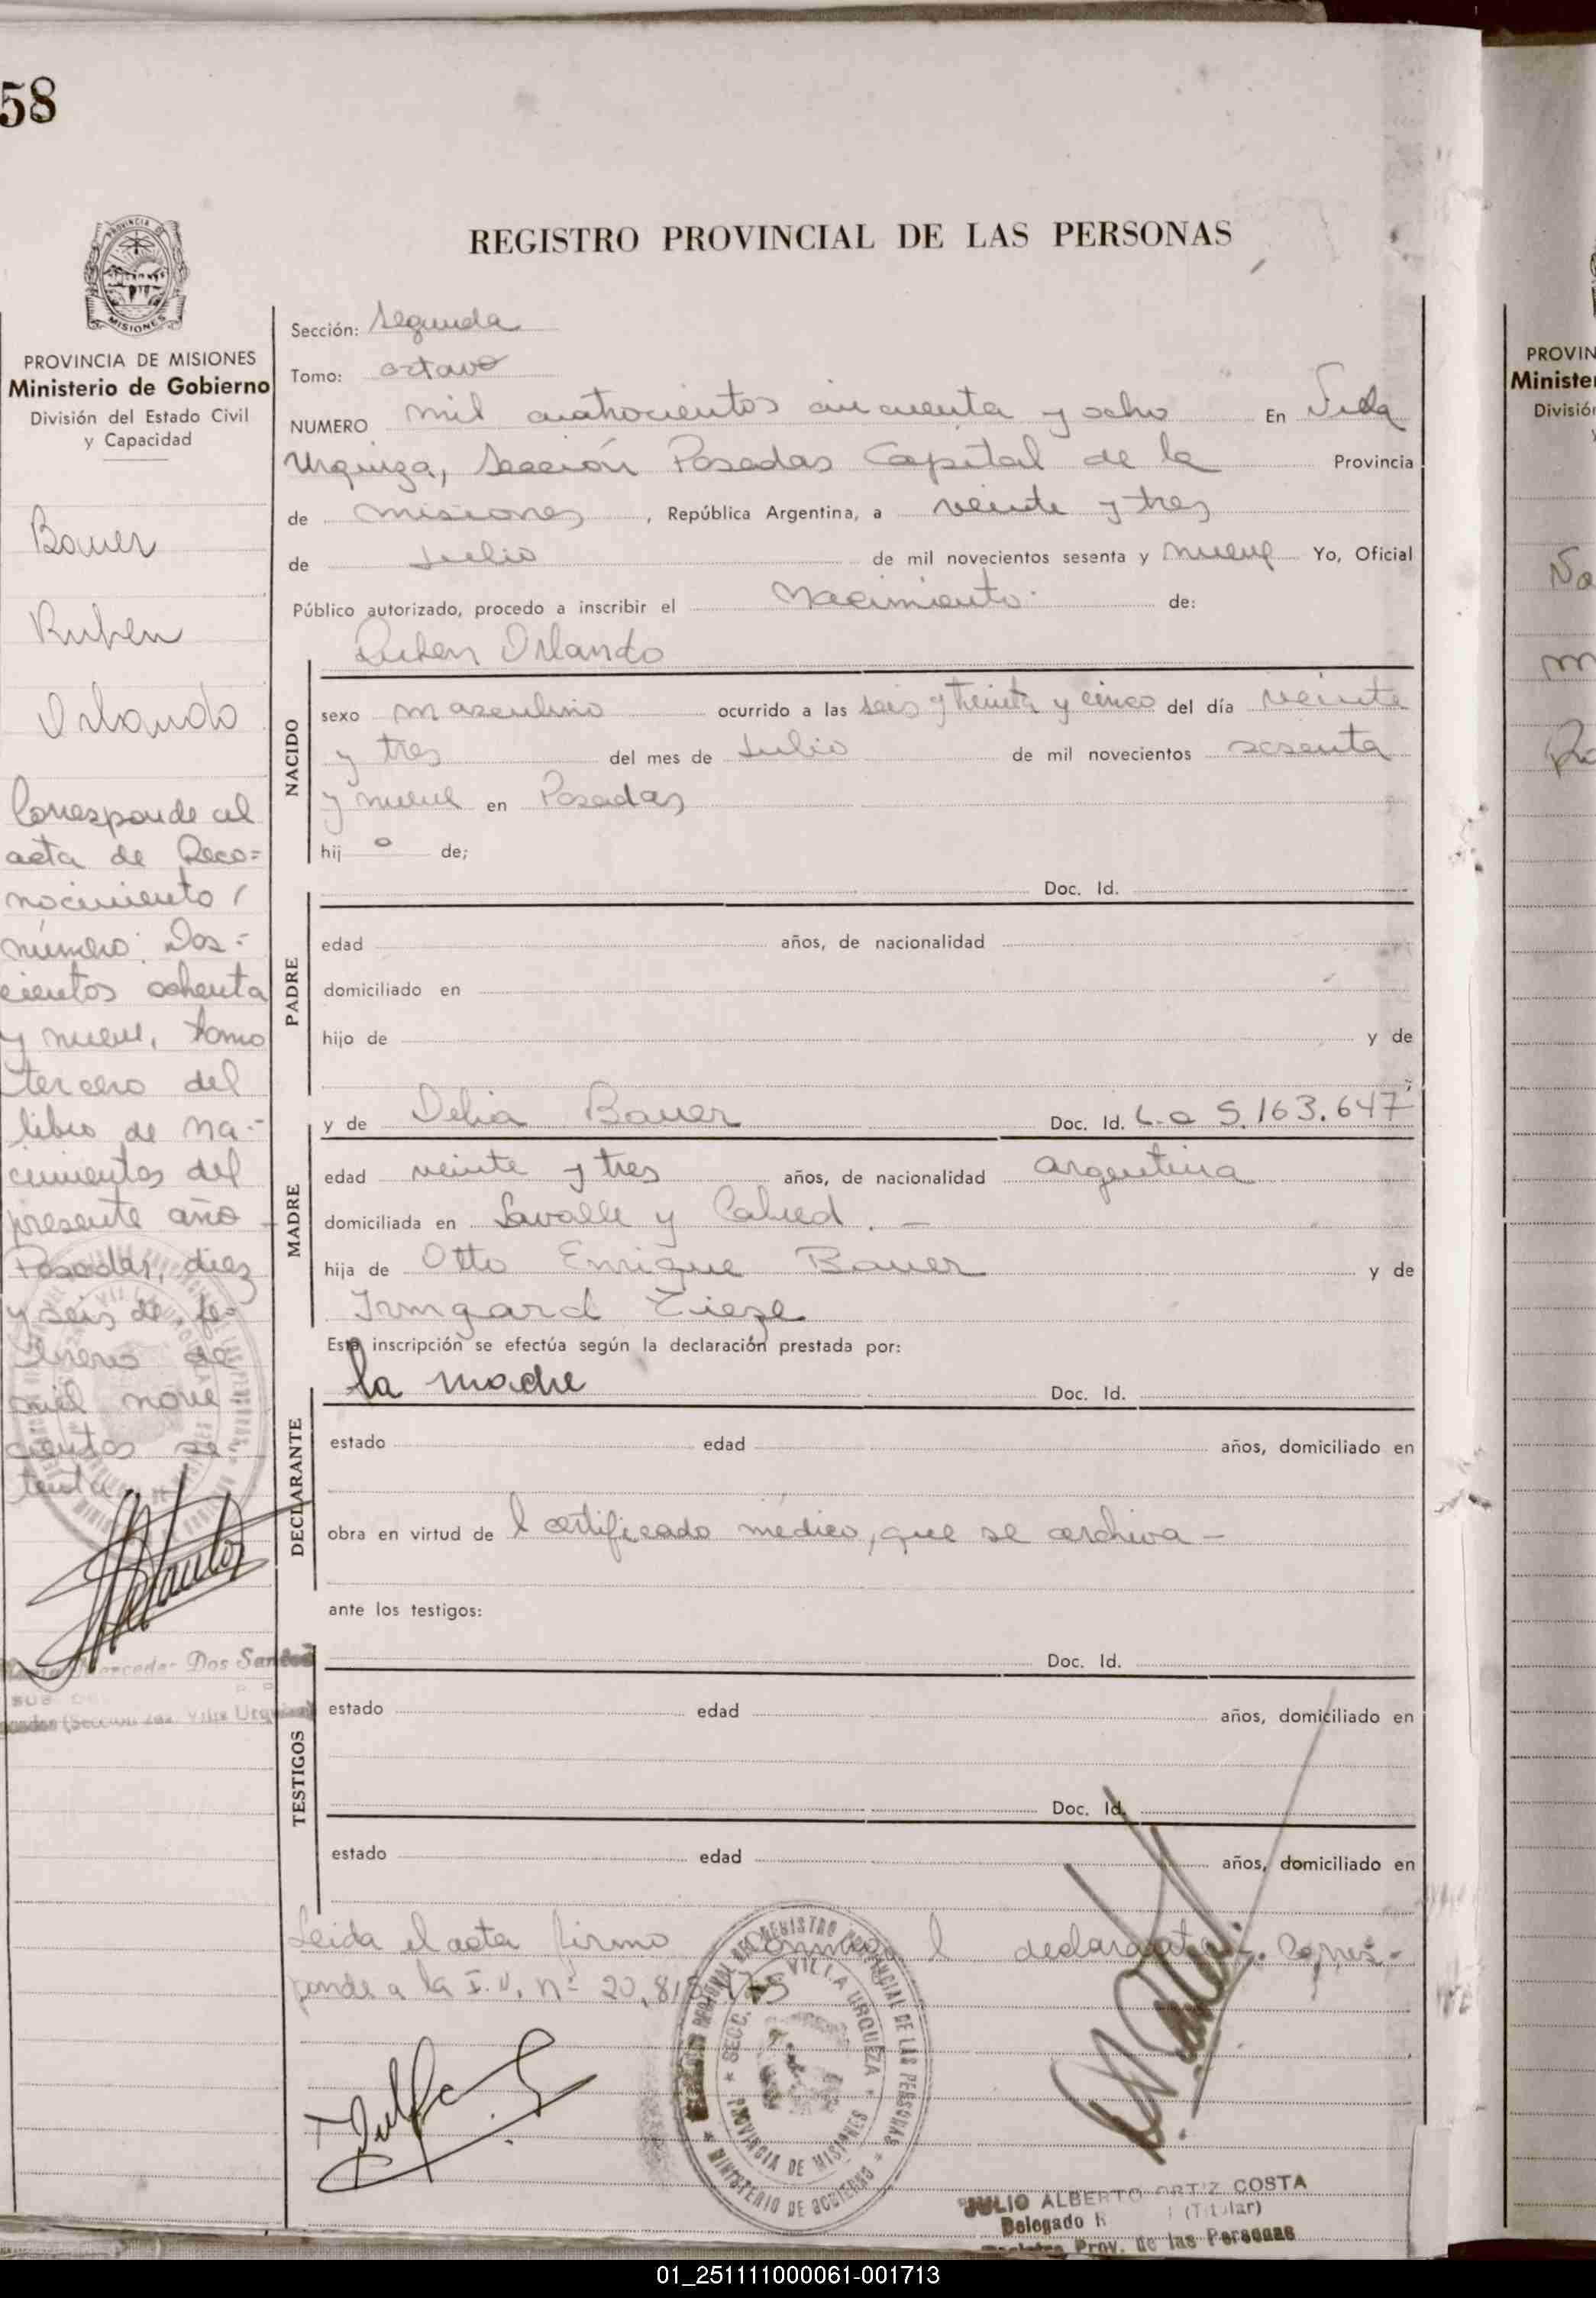 58
REGISTRO PROVINCIAL DE LAS PERSONAS
MISIONES
PROVINCIA DE MISIONES
Ministerio de Gobierno
División del Estado Civil
y Capacidad
Bauer
Ruben
Orlando
Corresponde al
acta de Reco=
nocimiento
número: Dos=
cientos ochenta
y nueve, tomo
tercero del
libro de na-
cimientos del
presente año
Posadas, diez
y seis de fe-
brero de
mil nove
cientos se-
tenta
Dos Santos
Sección: Segunda
Tomo: octavo
NUMERO mil cuatrocientos cincuenta y ocho En Villa
Urquiza, Sección Posadas Capital de la Provincia
de misiones, República Argentina, a veinte y tres
de Julio de mil novecientos sesenta y nueve Yo, Oficial
Público autorizado, procedo a inscribir el Nacimiento de:
Ruben Orlando
NACIDO
sexo masculino ocurrido a las seis y treinta y cinco del día veinte
y tres del mes de Julio de mil novecientos sesenta
y nueve en Posadas
hij o de;
PADRE
Doc. Id.
edad años, de nacionalidad
domiciliado en
hijo de y de
MADRE
y de Delia Bauer Doc. Id. L.C 5.163.647
edad veinte y tres años, de nacionalidad argentina
domiciliada en Lavalle y Cabred . -
hija de Otto Enrique Bauer y de
Irmgard Zieze
Esta inscripción se efectúa según la declaración prestada por:
DECLARANTE
la madre Doc. Id.
estado edad años, domiciliado en
obra en virtud de l certificado médico, que se archiva -
ante los testigos:
TESTIGOS
Doc. Id.
estado edad años, domiciliado en
Doc. Id.
estado edad años, domiciliado en
Leida el acta firma conmigo l declarante. Corres-
ponde a la I.U. nº 20,81
REGISTRO PROVINCIAL DE LAS PERSONAS
SECC. VILLA URQUIZA
PROVINCIA DE MISIONES
MINISTERIO DE GOBIERNO
JULIO ALBERTO ORTIZ COSTA
Delegado (Titular)
Registro Prov. de las Personas
PROVIN
Minister
División
01_251111000061-001713